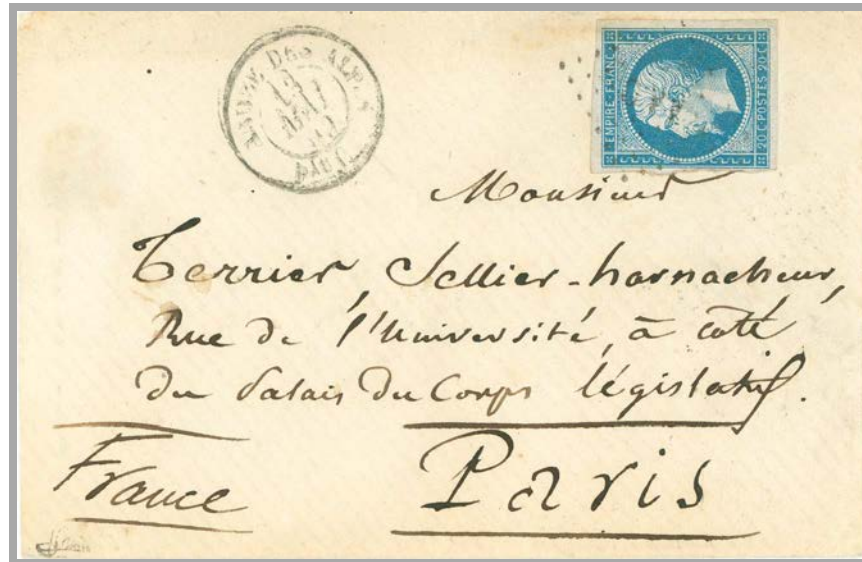 ARMÉE DES ALPES
MAI
EMPIRE FRANC
20 C. POSTES 20 C.
Monsieur
Terrier, Sellier-harnacheur,
Rue de l'Université, à côté
du Palais du Corps législatif.
France
Paris